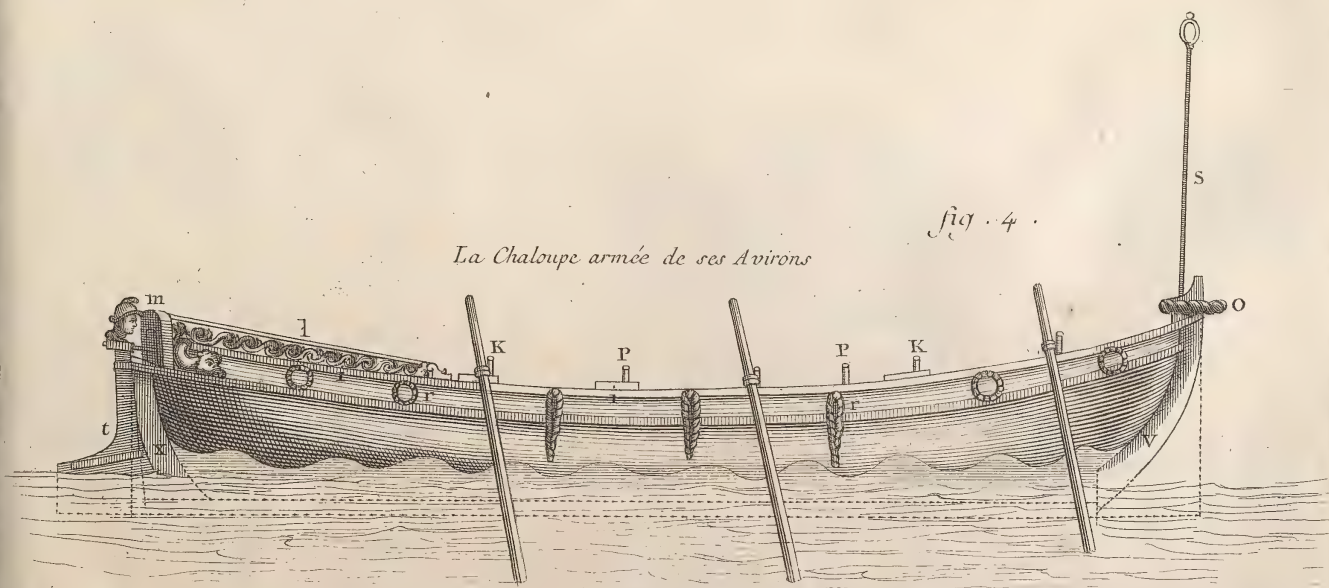 fig. 4.
La Chaloupe armée de ses Avirons
S
m
l
O
K
P
P
K
i
r
i
r
t
x
V